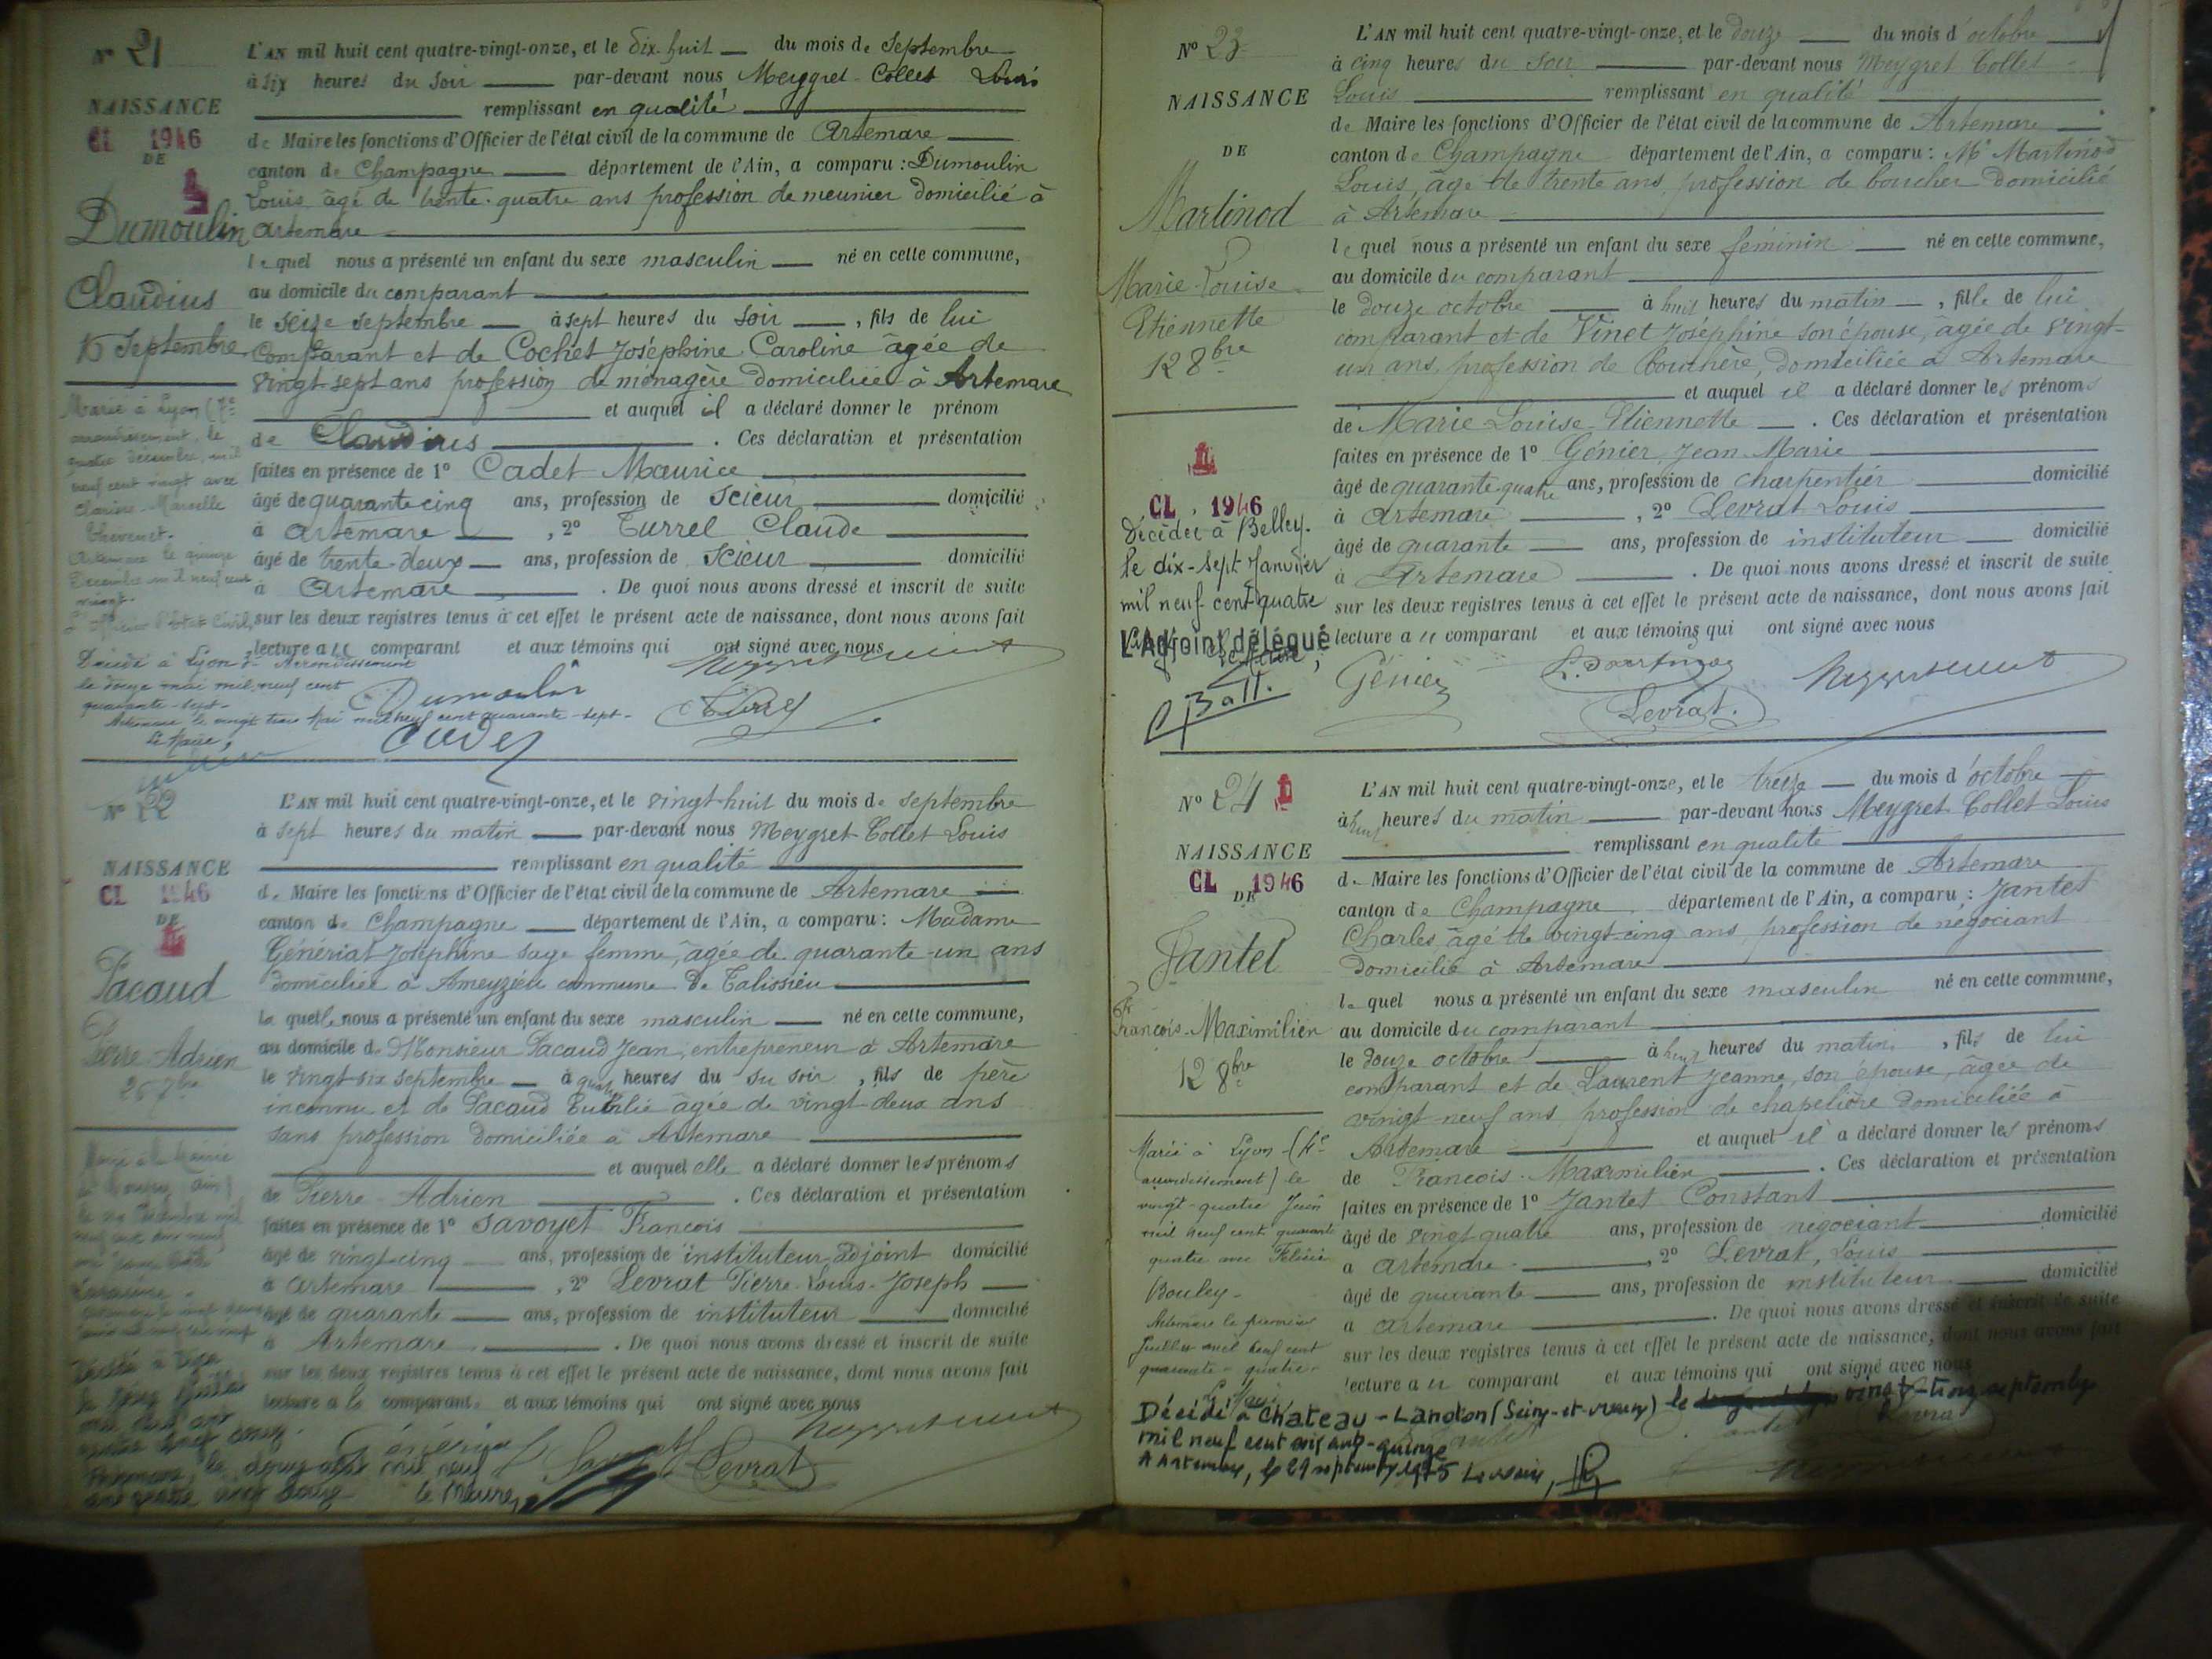 N° 21
NAISSANCE
CL 1946
DE
Dumoulin
Claudius
Septembre
L'AN mil huit cent quatre-vingt-onze, et le dix-huit du mois de Septembre
à six heures du soir par-devant nous Meygret-Collet Louis
remplissant en qualité
de Maire les fonctions d'Officier de l'état civil de la commune de Artemare
canton de Champagne département de l'Ain, a comparu : Dumoulin
Louis, âgé de trente-quatre ans profession de meunier domicilié à
Artemare
lequel nous a présenté un enfant du sexe masculin né en cette commune,
au domicile du comparant
le seize septembre à sept heures du soir, fils de lui
comparant et de Cochet Joséphine Caroline âgée de
vingt-sept ans profession de ménagère domiciliée à Artemare
et auquel il a déclaré donner le prénom
de Claudius. Ces déclaration et présentation
faites en présence de 1° Cadet Maurice
âgé de quarante cinq ans, profession de scieur domicilié
à Artemare, 2° Turrel Claude
âgé de trente-deux ans, profession de scieur domicilié
à Artemare. De quoi nous avons dressé et inscrit de suite
sur les deux registres tenus à cet effet le présent acte de naissance, dont nous avons fait
lecture au comparant et aux témoins qui ont signé avec nous
Marié à Lyon (7e
arrondissement, le
quatre décembre, mil
neuf cent vingt avec
Clarisse Marcelle
Thevenet.
Artemare le quinze
Décembre mil neuf cent
vingt.
L'officier d'Etat Civil,
Décédé à Lyon Arrondissement
le douze mai mil neuf cent
quarante-sept-
Artemare le vingt trois Mai mil neuf cent quarante-sept-
Le Maire,
Dumoulin
Cadet
N° 22
NAISSANCE
CL 1946
DE
Pacaud
Pierre Adrien
26 7bre
L'AN mil huit cent quatre-vingt-onze, et le vingt-huit du mois de septembre
à sept heures du matin par-devant nous Meygret-Collet Louis
remplissant en qualité
de Maire les fonctions d'Officier de l'état civil de la commune de Artemare
canton de Champagne département de l'Ain, a comparu : Madame
Génériat Joséphine sage femme, âgée de quarante-un ans
domiciliée à Ameyzieu commune de Talissieu
laquelle nous a présenté un enfant du sexe masculin né en cette commune,
au domicile de Monsieur Pacaud Jean, entrepreneur à Artemare
le vingt-six septembre à quatre heures du du soir, fils de père
inconnu et de Pacaud âgée de vingt-deux ans
sans profession domiciliée à Artemare
et auquel elle a déclaré donner les prénoms
de Pierre-Adrien. Ces déclaration et présentation
faites en présence de 1° Savoyet François
âgé de vingt-cinq ans, profession de instituteur-adjoint domicilié
à Artemare, 2° Levrat Pierre-Louis-Joseph
âgé de quarante ans, profession de instituteur domicilié
à Artemare. De quoi nous avons dressé et inscrit de suite
sur les deux registres tenus à cet effet le présent acte de naissance, dont nous avons fait
lecture à la comparante et aux témoins qui ont signé avec nous
le Maire,
Levrat
N° 23
NAISSANCE
DE
Martinod
Marie-Louise
Etiennette
12 8bre
CL 1946
Décédée à Belley.
le dix-sept Janvier
mil neuf cent quatre
L'Adjoint délégué
L'AN mil huit cent quatre-vingt-onze, et le douze du mois d'octobre
à cinq heures du soir par-devant nous Meygret Collet
Louis remplissant en qualité
de Maire les fonctions d'Officier de l'état civil de la commune de Artemare
canton de Champagne département de l'Ain, a comparu : Mr Martinod
Louis, âgé de trente ans, profession de boucher domicilié
à Artemare
lequel nous a présenté un enfant du sexe féminin né en cette commune,
au domicile du comparant
le douze octobre à huit heures du matin, fille de lui
comparant et de Vinet Joséphine son épouse, âgée de vingt-
un ans, profession de bouchère, domiciliée à Artemare
et auquel il a déclaré donner les prénoms
de Marie-Louise-Etiennette. Ces déclaration et présentation
faites en présence de 1° Génier Jean Marie
âgé de quarante-quatre ans, profession de charpentier domicilié
à Artemare, 2° Levrat Louis
âgé de quarante ans, profession de instituteur domicilié
à Artemare. De quoi nous avons dressé et inscrit de suite
sur les deux registres tenus à cet effet le présent acte de naissance, dont nous avons fait
lecture au comparant et aux témoins qui ont signé avec nous
Génier
Levrat.
N° 24
NAISSANCE
CL 1946
DE
Jantet
François-Maximilien
12 8bre
L'AN mil huit cent quatre-vingt-onze, et le treize du mois d'octobre
à heures du matin par-devant nous Meygret Collet Louis
remplissant en qualité
de Maire les fonctions d'Officier de l'état civil de la commune de Artemare
canton de Champagne département de l'Ain, a comparu : Jantet
Charles, âgé de vingt-cinq ans, profession de négociant
domicilié à Artemare
lequel nous a présenté un enfant du sexe masculin né en cette commune,
au domicile du comparant
le douze octobre à heures du matin, fils de lui
comparant et de Laurent Jeanne, son épouse, âgée de
vingt-neuf ans, profession de chapelière domiciliée à
Artemare et auquel il a déclaré donner les prénoms
de François-Maximilien. Ces déclaration et présentation
faites en présence de 1° Jantet Constant
âgé de vingt quatre ans, profession de négociant domicilié
à Artemare, 2° Levrat, Louis
âgé de quarante ans, profession de instituteur domicilié
à Artemare. De quoi nous avons dressé et inscrit de suite
sur les deux registres tenus à cet effet le présent acte de naissance, dont nous avons fait
lecture au comparant et aux témoins qui ont signé avec nous
Marié à Lyon
arrondissement) le
vingt-quatre Juin
mil neuf cent quarante
quatre avec Félicie
Bouley-
Artemare le premier
Juillet mil neuf cent
quarante-quatre-
Décédé à Chateau-Landon (Seine-et-Marne) le vingt-cinq septembre
mil neuf cent soixante-quinze
A Artemare, le 29 septembre 1975 Le Maire,